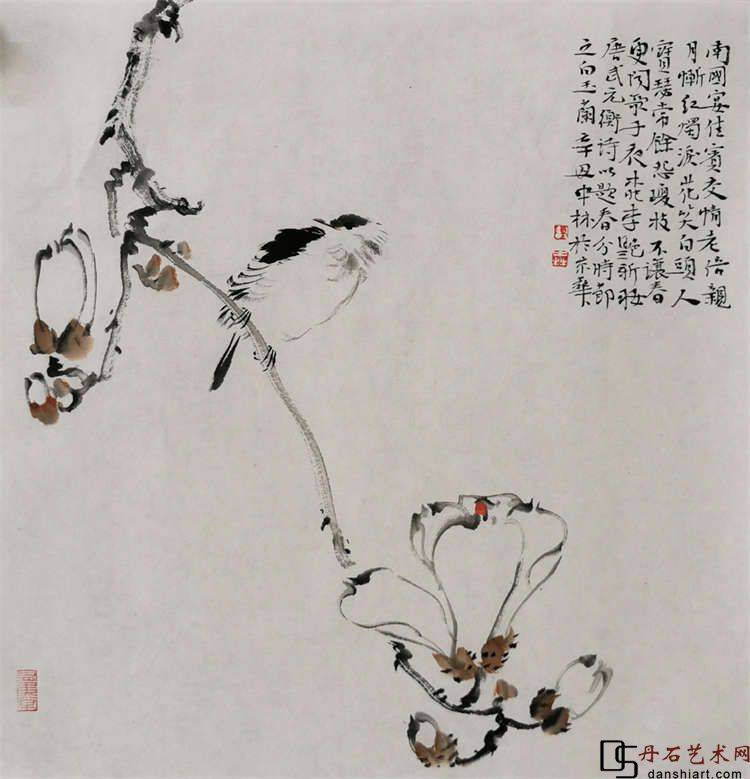 南國宴佳賓交情老倍親
月慚紅燭淚花笑白頭人
寶瑟常餘怨瓊枝不讓春
更聞歌子夜桃李艷新妝
唐武元衡詩以題春分時節
之白玉蘭辛丑中林於京華
丹石艺术网
danshiart.com